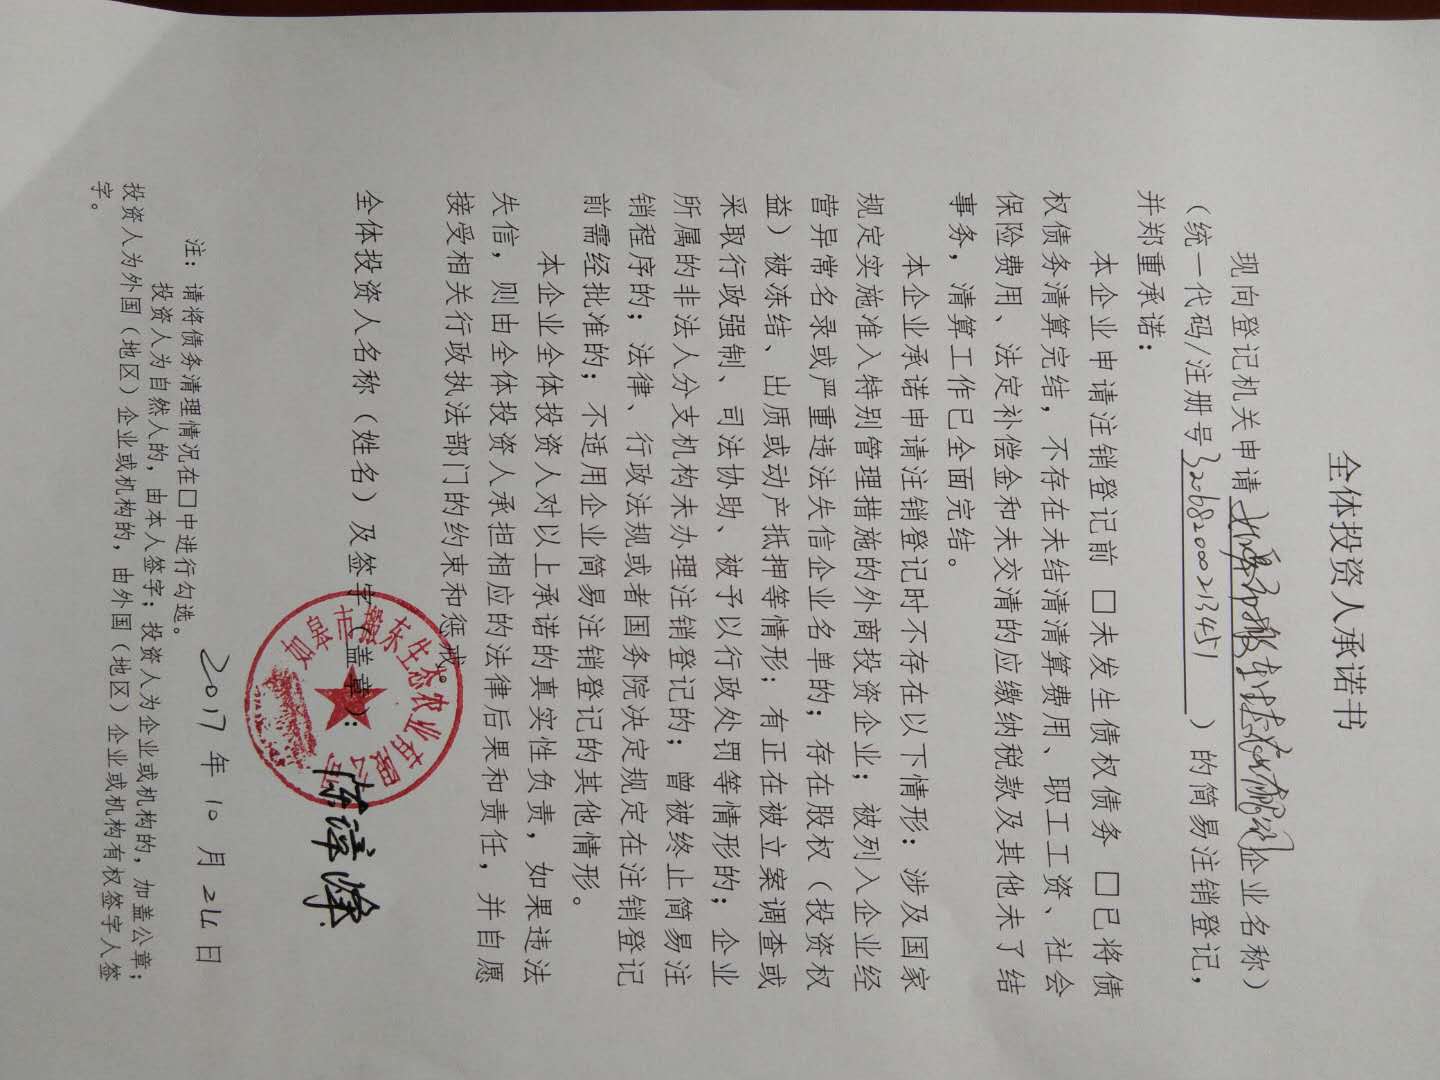 全体投资人承诺书
现向登记机关申请 企业名称）
（统一代码/注册号320682000213451）的简易注销登记，
并郑重承诺：
本企业申请注销登记前 □未发生债权债务 □已将债
权债务清算完结，不存在未结清清算费用、职工工资、社会
保险费用、法定补偿金和未交清的应缴纳税款及其他未了结
事务，清算工作已全面完结。
本企业承诺申请注销登记时不存在以下情形：涉及国家
规定实施准入特别管理措施的外商投资企业；被列入企业经
营异常名录或严重违法失信企业名单的；存在股权（投资权
益）被冻结、出质或动产抵押等情形；有正在被立案调查或
采取行政强制、司法协助、被予以行政处罚等情形的；企业
所属的非法人分支机构未办理注销登记的；曾被终止简易注
销程序的；法律、行政法规或者国务院决定规定在注销登记
前需经批准的；不适用企业简易注销登记的其他情形。
本企业全体投资人对以上承诺的真实性负责，如果违法
失信，则由全体投资人承担相应的法律后果和责任，并自愿
接受相关行政执法部门的约束和惩戒。
全体投资人名称（姓名）及签字（盖章）：
如皋市 东生态农业有限公司
2017年10月24日
注：请将债务清理情况在□中进行勾选。
投资人为自然人的，由本人签字；投资人为企业或机构的，加盖公章；
投资人为外国（地区）企业或机构的，由外国（地区）企业或机构有权签字人签
字。